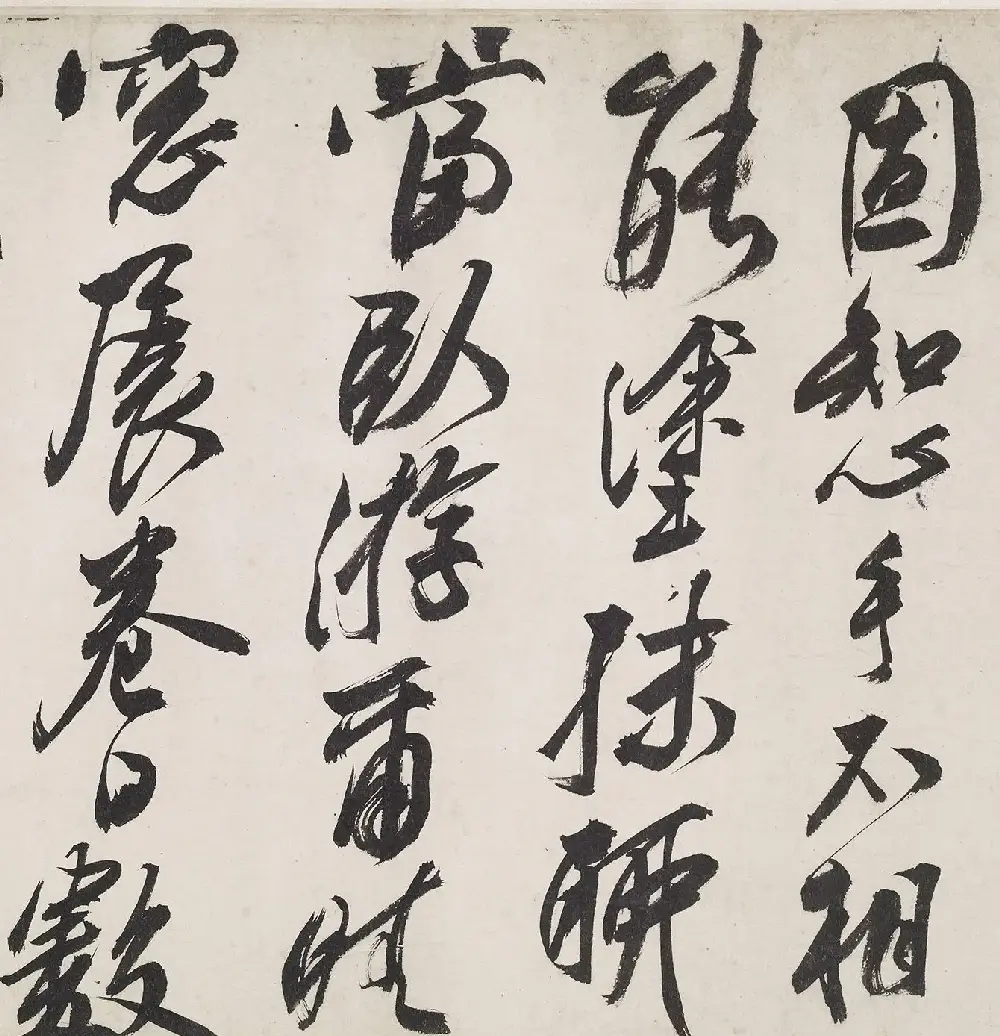 固知心手不相
能塗抹聊
當臥游爾晴
窓展卷日數